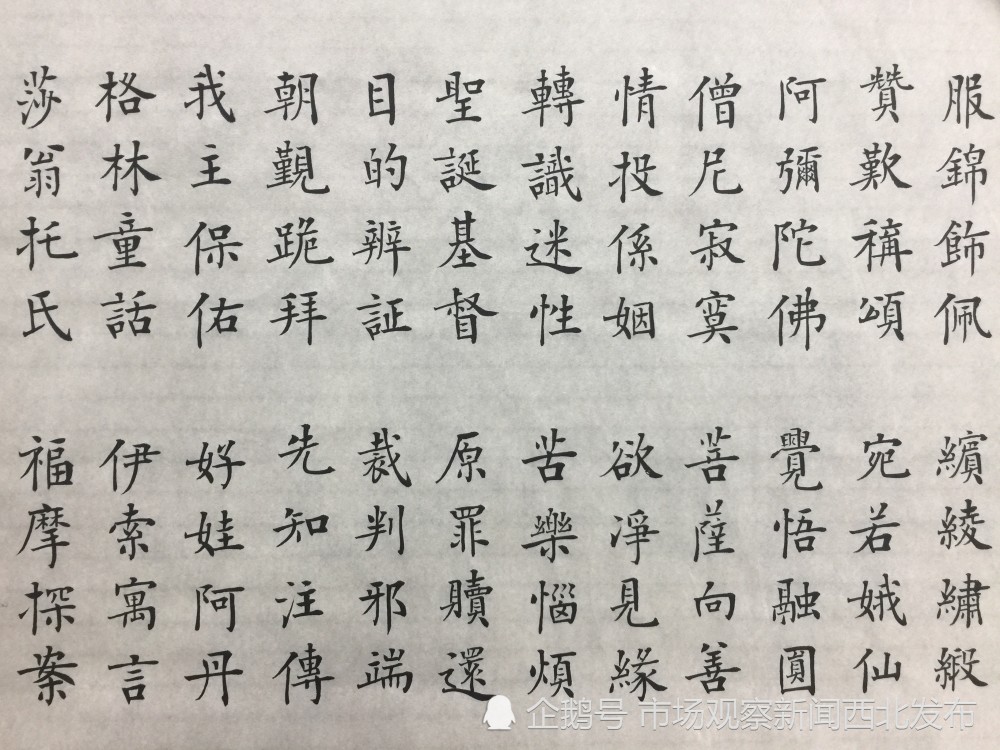 服錦飾佩 繽綾繡緞
贊歎稱頌 宛若娥仙
阿彌陀佛 覺悟融圓
僧尼寂寞 菩薩向善
情投係姻 欲淨見緣
轉識迷性 苦樂惱煩
聖誕基督 原罪贖還
目的辨証 裁判邪端
朝覲跪拜 先知注傳
我主保佑 好娃阿丹
格林童話 伊索寓言
莎翁托氏 福摩探案
企鹅号 市场观察新闻西北发布